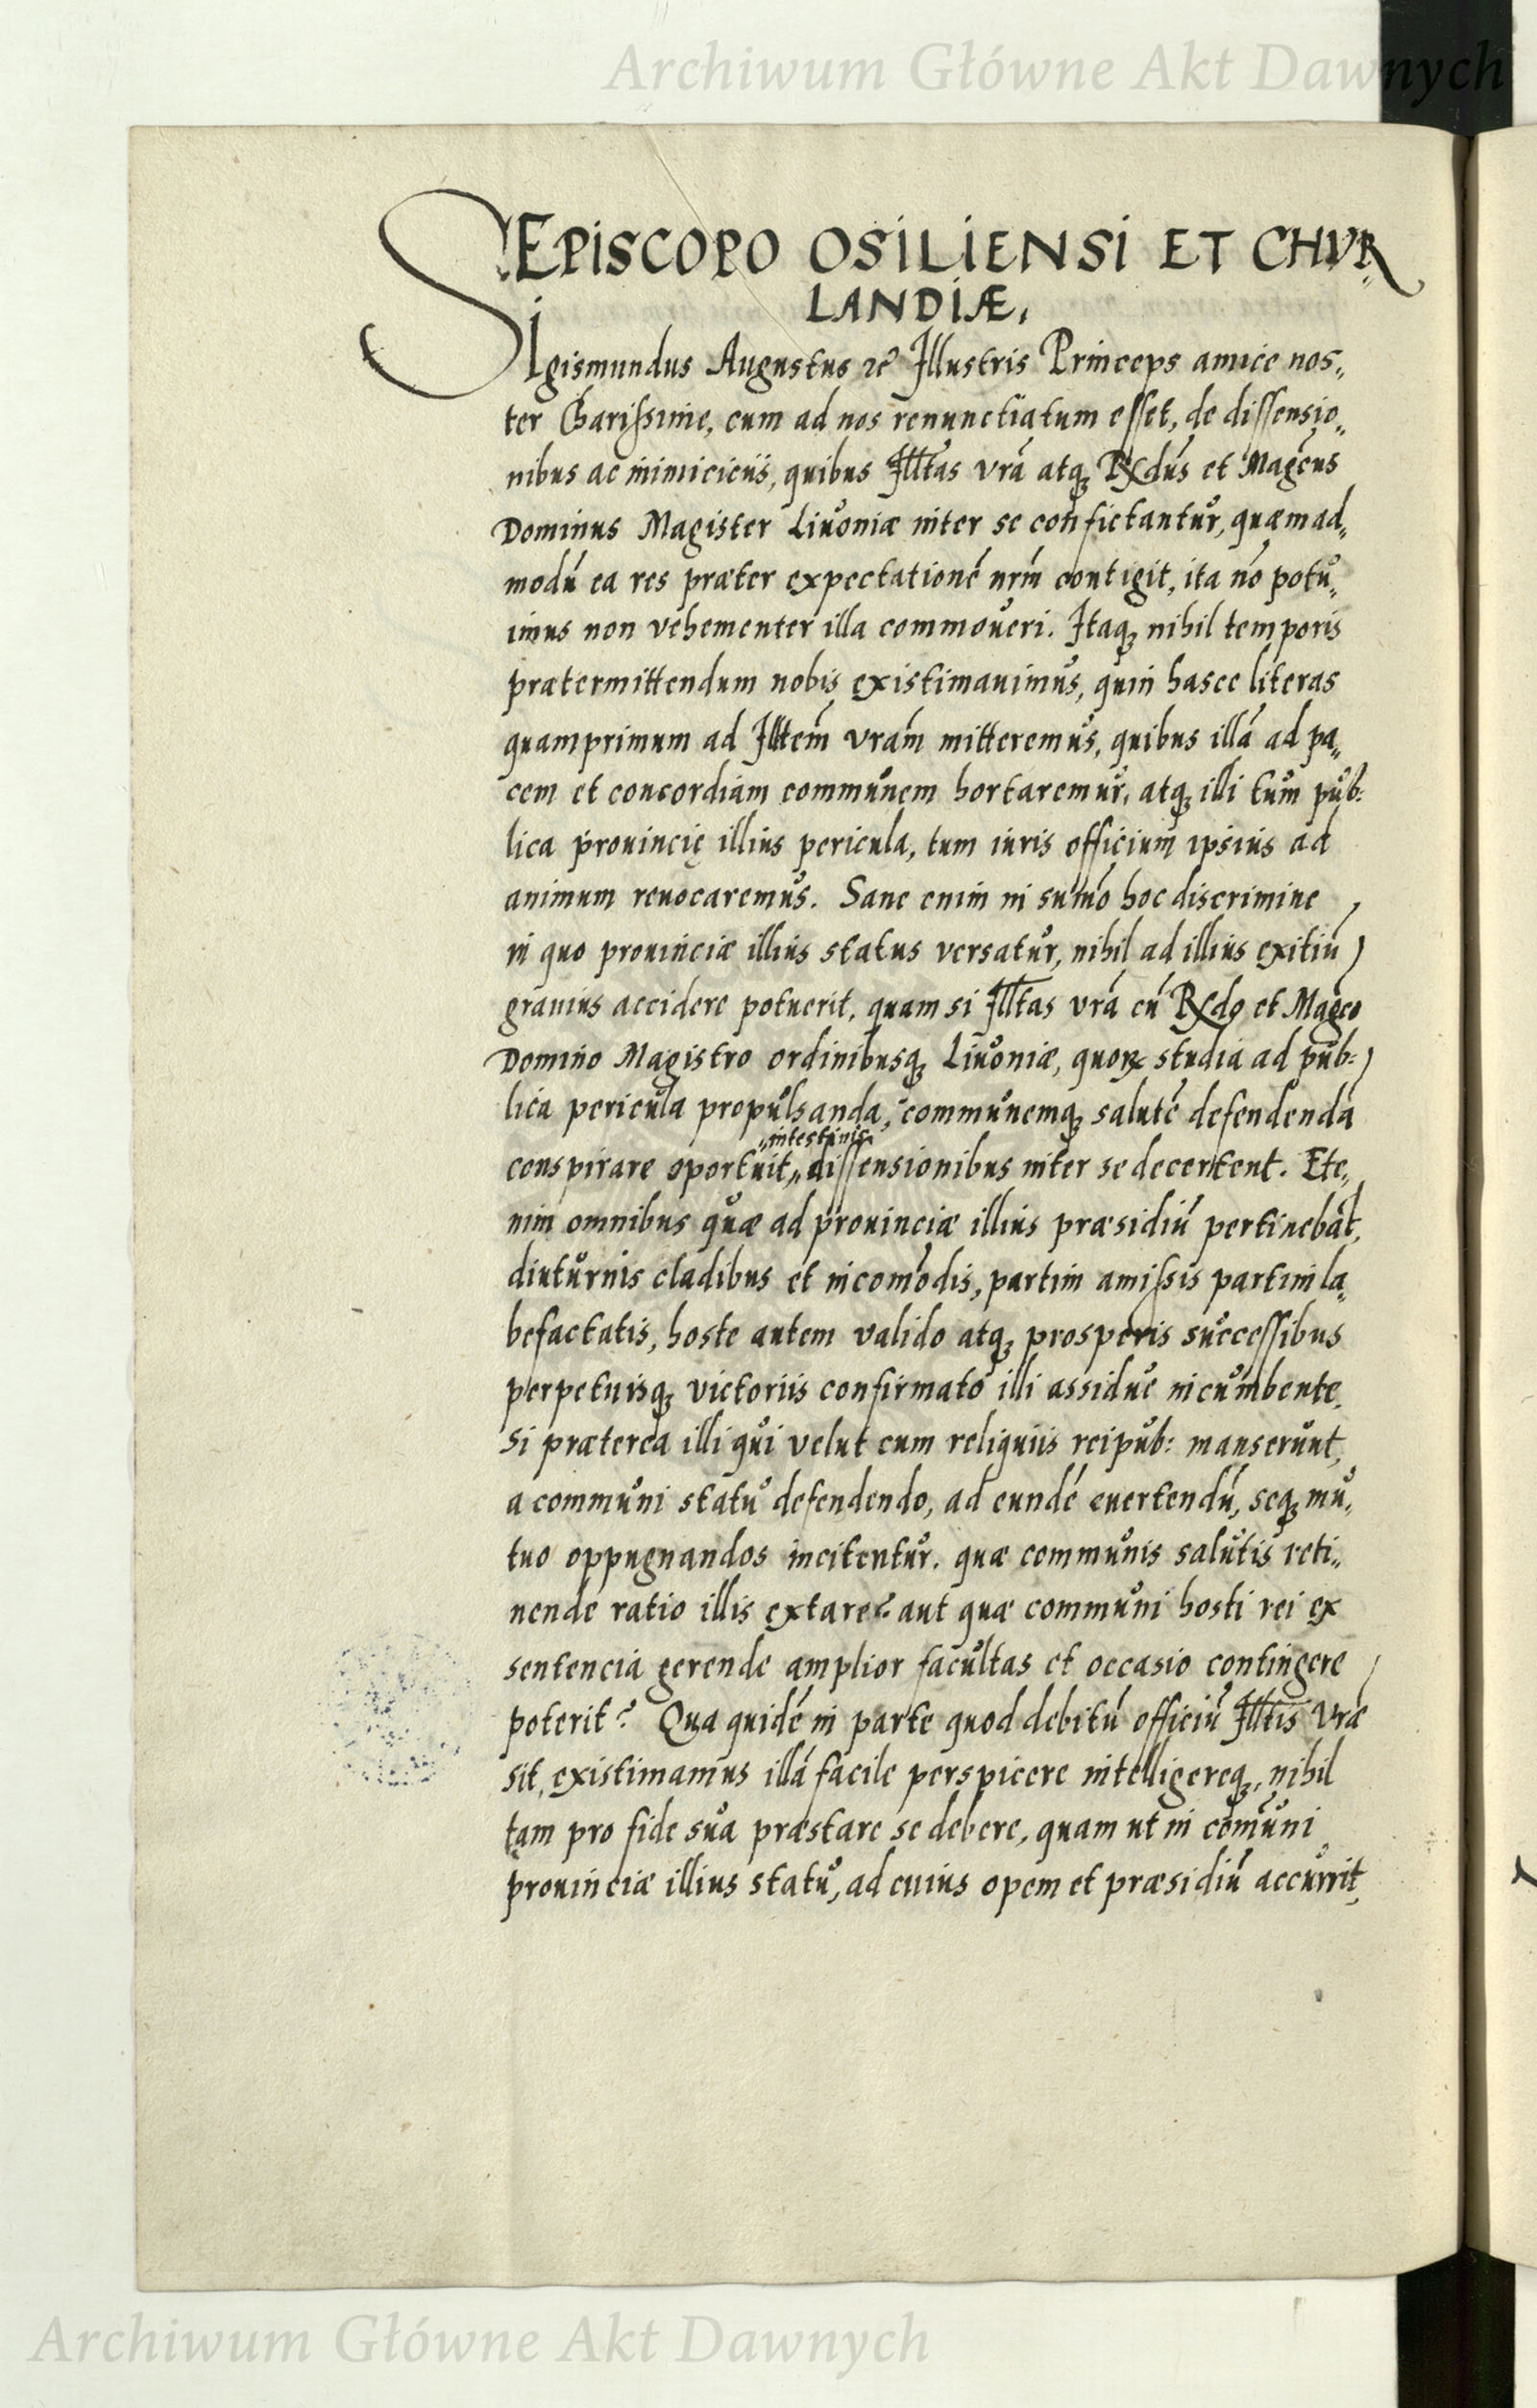 Archiwum Główne Akt Dawnych
EPISCOPO OSILIENSI ET CHVR„
LANDIÆ,
SIgismundus Augustus ꝛc̃ Illustris Princeps amice nos„
ter Charissime, cum ad nos renunctiatum esset, de dissensio„
nibus ac inimiciciis, quibus Illtas vrã atq̃ Rdus et Magcus
Dominus Magister Liuoniæ inter se conflictantur, quæmad„
modũ ea res præter expectationẽ nrm̃ contigit, ita nõ potu„
imus non vehementer illa commoueri. Itaq̃ nihil temporis
prætermittendum nobis existimauimus, quin hasce literas
quamprimum ad Illtem̃ vram̃ mitteremus, quibus illã ad pa„
cem et concordiam communem hortaremur, atq̃ illi tum pub:
lica prouincię illius pericula, tum iuris officium ipsius ad
animum reuocaremus. Sane enim in sum̃o hoc discrimine
in quo prouinciæ illius status versatur, nihil ad illius exitiũ
grauius accidere potuerit, quam si Illtas vrã cũ Rdo et Magco
Domino Magistro ordinibusq̃ Liuoniæ, quoꝝ studia ad pub:
lica pericula propulsanda, communemq̃ salutẽ defendendã
„intestinis„
conspirare oportuit„ dissensionibus inter se decertent. Ete„
nim omnibus quæ ad prouinciæ illius præsidiũ pertinebãt,
diuturnis cladibus et incom̃odis, partim amissis partim la„
befactatis, hoste autem valido atq̃ prosperis successibus
perpetuisq̃ victoriis confirmato illi assidue incumbente,
si præterea illi qui velut cum reliquiis reipub: manserunt,
a communi statu defendendo, ad eundẽ euertendũ, seq̃ mu„
tuo oppugnandos incitentur. quæ communis salutis reti„
nende ratio illis extare? aut quæ communi hosti rei ex
sentencia gerende amplior facultas et occasio contingere
poterit? Qua quidẽ in parte quod debitũ officiũ Illtis Vræ
sit, existimamus illã facile perspicere intelligereq̃, nihil
tam pro fide sua præstare se debere, quam ut in com̃uni
prouinciæ illius statu, ad cuius opem et præsidiũ accurrit,
Archiwum Główne Akt Dawnych